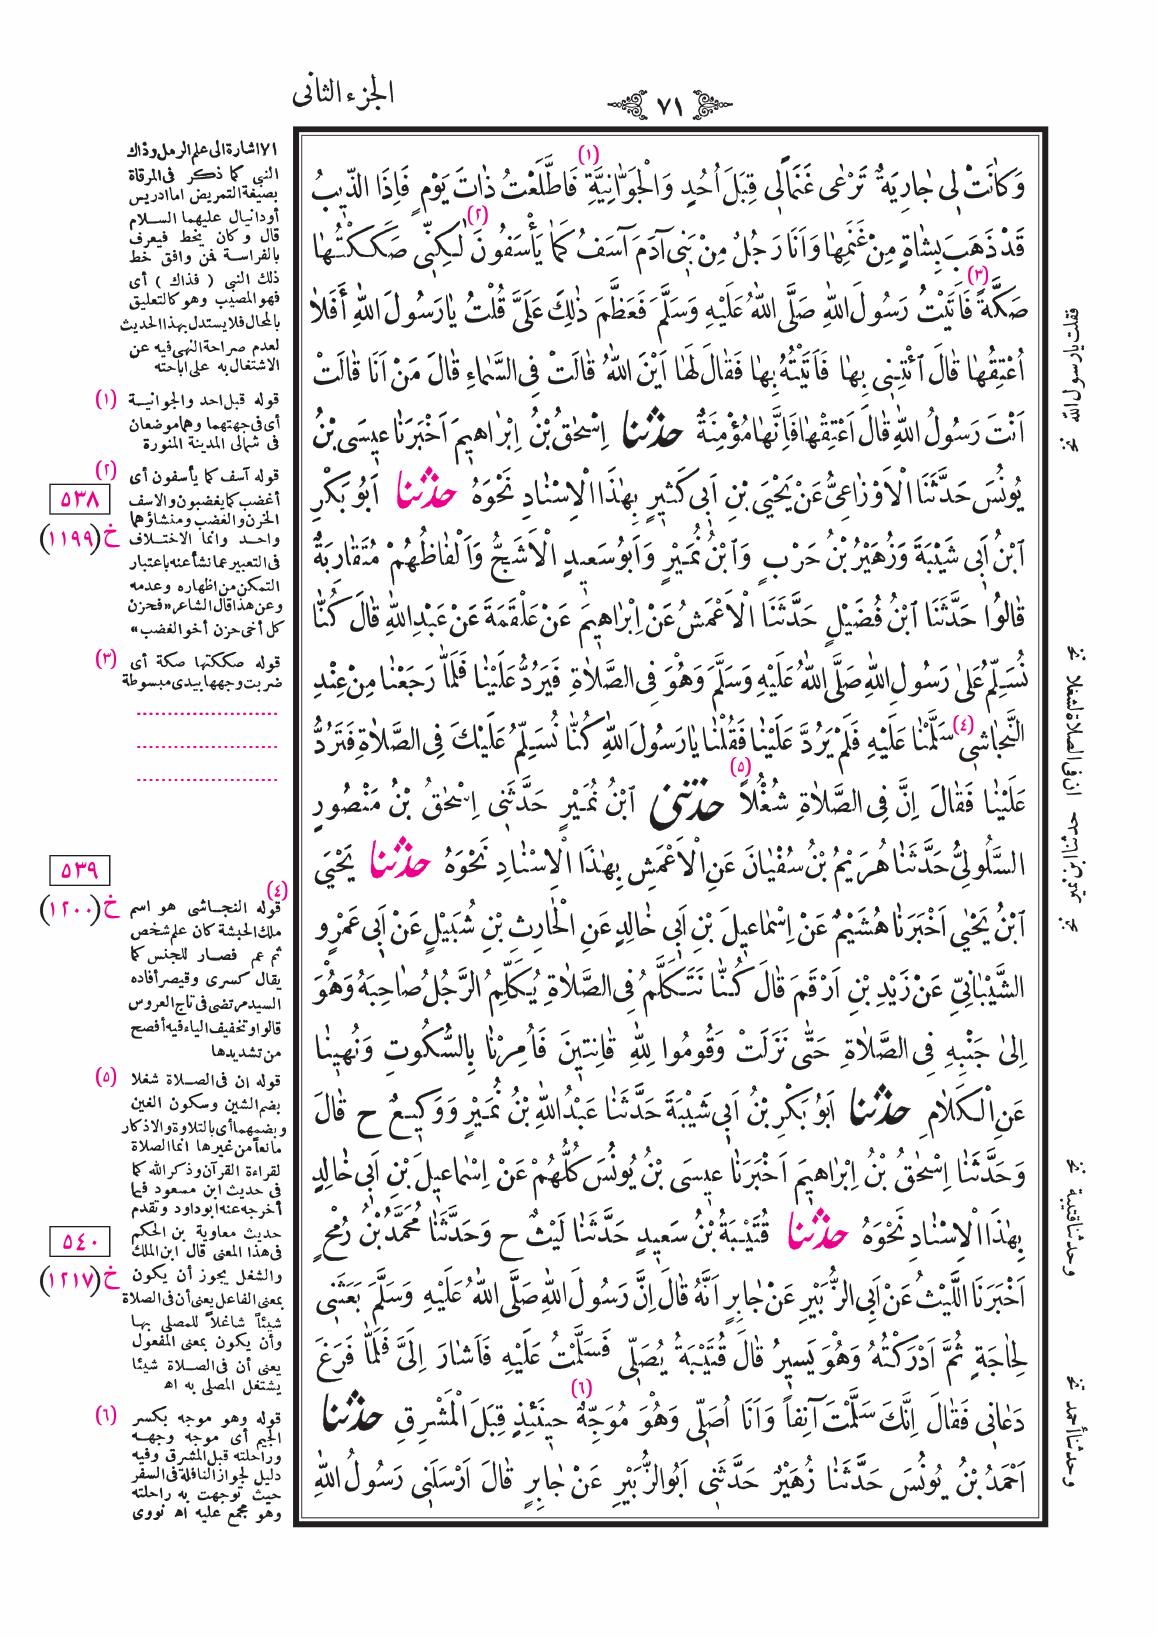 الجزء الثانى
٧١
وَكَانَتْ لِى جَارِيَةٌ تَرْعَى غَنَمًا لِى قِبَلَ اُحُدٍ وَالْجَوَّانِيَّةِ (١) فَاطَّلَعْتُ ذَاتَ يَوْمٍ فَإِذَا الذِّيبُ
قَدْ ذَهَبَ بِشَاةٍ مِنْ غَنَمِهَا وَاَنَا رَجُلٌ مِنْ بَنِى آدَمَ آسَفُ كَمَا يَأْسَفُونَ (٢) لٰكِنِّى صَكَكْتُهَا
صَكَّةً (٣) فَاَتَيْتُ رَسُولَ اللهِ صَلَّى اللهُ عَلَيْهِ وَسَلَّمَ فَعَظَّمَ ذٰلِكَ عَلَىَّ قُلْتُ يَا رَسُولَ اللهِ أَفَلَا
اُعْتِقُهَا قَالَ ائْتِنِى بِهَا فَاَتَيْتُهُ بِهَا فَقَالَ لَهَا اَيْنَ اللهُ قَالَتْ فِى السَّمَاءِ قَالَ مَنْ اَنَا قَالَتْ
اَنْتَ رَسُولُ اللهِ قَالَ اَعْتِقْهَا فَاِنَّهَا مُؤْمِنَةٌ حدثنا اِسْحٰقُ بْنُ اِبْرَاهِيمَ اَخْبَرَنَا عِيسَى بْنُ
يُونُسَ حَدَّثَنَا الْاَوْزَاعِىُّ عَنْ يَحْيَى بْنِ اَبِى كَثِيرٍ بِهٰذَا الْاِسْنَادِ نَحْوَهُ حدثنا اَبُو بَكْرِ
ابْنُ اَبِى شَيْبَةَ وَزُهَيْرُ بْنُ حَرْبٍ وَابْنُ نُمَيْرٍ وَاَبُو سَعِيدٍ الْاَشَجُّ وَاَلْفَاظُهُمْ مُتَقَارِبَةٌ
قَالُوا حَدَّثَنَا ابْنُ فُضَيْلٍ حَدَّثَنَا الْاَعْمَشُ عَنْ اِبْرَاهِيمَ عَنْ عَلْقَمَةَ عَنْ عَبْدِ اللهِ قَالَ كُنَّا
نُسَلِّمُ عَلَى رَسُولِ اللهِ صَلَّى اللهُ عَلَيْهِ وَسَلَّمَ وَهُوَ فِى الصَّلَاةِ فَيَرُدُّ عَلَيْنَا فَلَمَّا رَجَعْنَا مِنْ عِنْدِ
النَّجَاشِى (٤) سَلَّمْنَا عَلَيْهِ فَلَمْ يَرُدَّ عَلَيْنَا فَقُلْنَا يَا رَسُولَ اللهِ كُنَّا نُسَلِّمُ عَلَيْكَ فِى الصَّلَاةِ فَتَرُدُّ
عَلَيْنَا فَقَالَ اِنَّ فِى الصَّلَاةِ شُغْلًا (٥) حدثنى ابْنُ نُمَيْرٍ حَدَّثَنِى اِسْحٰقُ بْنُ مَنْصُورٍ
السَّلُولِىُّ حَدَّثَنَا هُرَيْمُ بْنُ سُفْيَانَ عَنِ الْاَعْمَشِ بِهٰذَا الْاِسْنَادِ نَحْوَهُ حدثنا يَحْيَى
ابْنُ يَحْيَى اَخْبَرَنَا هُشَيْمٌ عَنْ اِسْمَاعِيلَ بْنِ اَبِى خَالِدٍ عَنِ الْحَارِثِ بْنِ شُبَيْلٍ عَنْ اَبِى عَمْرٍو
الشَّيْبَانِىِّ عَنْ زَيْدِ بْنِ اَرْقَمَ قَالَ كُنَّا نَتَكَلَّمُ فِى الصَّلَاةِ يُكَلِّمُ الرَّجُلُ صَاحِبَهُ وَهُوَ
اِلَى جَنْبِهِ فِى الصَّلَاةِ حَتَّى نَزَلَتْ وَقُومُوا لِلّٰهِ قَانِتِينَ فَاُمِرْنَا بِالسُّكُوتِ وَنُهِينَا
عَنِ الْكَلَامِ حدثنا اَبُو بَكْرِ بْنُ اَبِى شَيْبَةَ حَدَّثَنَا عَبْدُ اللهِ بْنُ نُمَيْرٍ وَوَكِيعٌ ح قَالَ
وَحَدَّثَنَا اِسْحٰقُ بْنُ اِبْرَاهِيمَ اَخْبَرَنَا عِيسَى بْنُ يُونُسَ كُلُّهُمْ عَنْ اِسْمَاعِيلَ بْنِ اَبِى خَالِدٍ
بِهٰذَا الْاِسْنَادِ نَحْوَهُ حدثنا قُتَيْبَةُ بْنُ سَعِيدٍ حَدَّثَنَا لَيْثٌ ح وَحَدَّثَنَا مُحَمَّدُ بْنُ رُمْحٍ
اَخْبَرَنَا اللَّيْثُ عَنْ اَبِى الزُّبَيْرِ عَنْ جَابِرٍ اَنَّهُ قَالَ اِنَّ رَسُولَ اللهِ صَلَّى اللهُ عَلَيْهِ وَسَلَّمَ بَعَثَنِى
لِحَاجَةٍ ثُمَّ اَدْرَكْتُهُ وَهُوَ يَسِيرُ قَالَ قُتَيْبَةُ يُصَلِّى فَسَلَّمْتُ عَلَيْهِ فَاَشَارَ اِلَىَّ فَلَمَّا فَرَغَ
دَعَانِى فَقَالَ اِنَّكَ سَلَّمْتَ آنِفًا وَاَنَا اُصَلِّى وَهُوَ مُوَجِّهٌ (٦) حِينَئِذٍ قِبَلَ الْمَشْرِقِ حدثنا
اَحْمَدُ بْنُ يُونُسَ حَدَّثَنَا زُهَيْرٌ حَدَّثَنِى اَبُو الزُّبَيْرِ عَنْ جَابِرٍ قَالَ اَرْسَلَنِى رَسُولُ اللهِ
٧١ اشارة الى علم الرمل وذاك
النبى كما ذكر فى المرقاة
بصيغة التمريض اما ادريس
أو دانيال عليهما السلام
قال وكان يخط فيعرف
بالفراسة فمن وافق خط
ذلك النبى ( فذاك ) أى
فهو المصيب وهو كالتعليق
بالمحال فلا يستدل بهذا الحديث
لعدم صراحة النهى فيه عن
الاشتغال به على اباحته
(١) قوله قبل احد والجوانية
أى فى جهتهما وهما موضعان
فى شمالى المدينة المنورة
(٢) قوله آسف كما يأسفون أى
أغضب كما يغضبون والاسف
الحزن والغضب ومنشاؤهما
واحد وانما الاختلاف
فى التعبير عما نشأ عنه باعتبار
التمكن من اظهاره وعدمه
وعن هذا قال الشاعر «فحزن
كل أخى حزن أخو الغضب»
(٣) قوله صككتها صكة أى
ضربت وجهها بيدى مبسوطة
٥٣٨
خ (١١٩٩)
٥٣٩
خ (١٢٠٠)
(٤) قوله النجاشى هو اسم
ملك الحبشة كان علم شخص
ثم عم فصار للجنس كما
يقال كسرى وقيصر أفاده
السيد مرتضى فى تاج العروس
قالوا وتخفيف الياء فيه أفصح
من تشديدها
(٥) قوله ان فى الصلاة شغلا
بضم الشين وسكون الغين
وبضمهما أى بالتلاوة والاذكار
مانعاً من غيرها انما الصلاة
لقراءة القرآن وذكر الله كما
فى حديث ابن مسعود فيما
أخرجه عنه ابو داود وتقدم
حديث معاوية بن الحكم
فى هذا المعنى قال ابن الملك
والشغل يجوز أن يكون
بمعنى الفاعل يعنى أن فى الصلاة
شيئاً شاغلاً للمصلى بها
وأن يكون بمعنى المفعول
يعنى أن فى الصلاة شيئا
يشتغل المصلى به اه
٥٤٠
خ (١٢١٧)
(٦) قوله وهو موجه بكسر
الجيم أى موجه وجهه
وراحلته قبل المشرق وفيه
دليل لجواز النافلة فى السفر
حيث توجهت به راحلته
وهو مجمع عليه اه نووى
فقلت يا رسول الله نخ
نخ ان فى الصلاة لشغلا
حدثنا ابن نمير نخ
نخ وحدثنا قتيبة
نخ وحدثنا أحمد